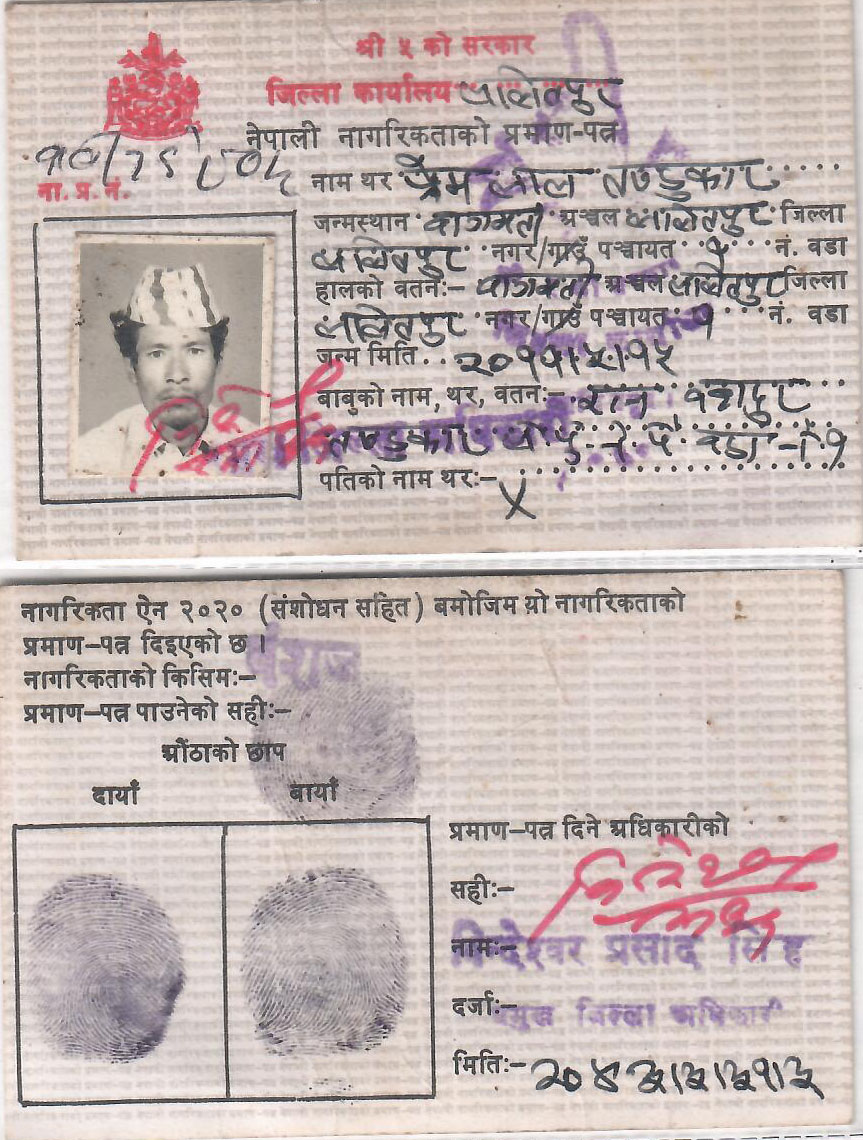 श्री ५ को सरकार
जिल्ला कार्यालय ललितपुर
नेपाली नागरिकताको प्रमाण-पत्र
ना. प्र. नं.
नाम थर प्रेम लाल तण्डुकार
जन्मस्थान वागमती अञ्चल ललितपुर जिल्ला
ललितपुर नगर/गाउँ पञ्चायत १ नं. वडा
हालको वतनः- वागमती अञ्चल ललितपुर जिल्ला
ललितपुर नगर/गाउँ पञ्चायत १ नं. वडा
जन्म मिति २०११।५।१५
बाबुको नाम, थर, वतनः-
तण्डुकार
पतिको नाम थरः- X
नागरिकता ऐन २०२० (संशोधन सहित) बमोजिम यो नागरिकताको
प्रमाण-पत्र दिइएको छ ।
नागरिकताको किसिमः- वंशज
प्रमाण-पत्र पाउनेको सहीः-
औंठाको छाप
दायाँ बायाँ
प्रमाण-पत्र दिने अधिकारीको
सहीः-
नामः- प्रसाद सिंह
दर्जाः- प्रमुख जिल्ला अधिकारी
मितिः-